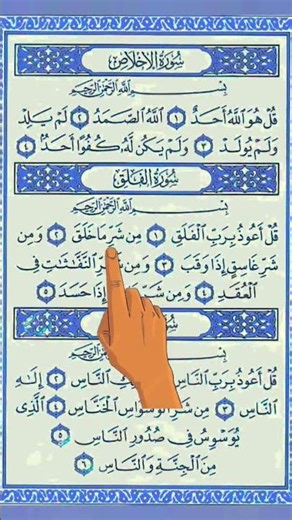 سُورَةُ الإِخْلَاصِ
بِسْمِ اللَّهِ الرَّحْمَٰنِ الرَّحِيمِ
قُلْ هُوَ اللَّهُ أَحَدٌ ١ اللَّهُ الصَّمَدُ ٢ لَمْ يَلِدْ
وَلَمْ يُولَدْ ٣ وَلَمْ يَكُن لَّهُ كُفُوًا أَحَدٌ ٤
سُورَةُ الْفَلَقِ
بِسْمِ اللَّهِ الرَّحْمَٰنِ الرَّحِيمِ
قُلْ أَعُوذُ بِرَبِّ الْفَلَقِ ١ مِن شَرِّ مَا خَلَقَ ٢ وَمِن
شَرِّ غَاسِقٍ إِذَا وَقَبَ ٣ وَمِن شَرِّ النَّفَّاثَاتِ فِي
الْعُقَدِ ٤ وَمِن شَرِّ إِذَا حَسَدَ ٥
بِسْمِ اللَّهِ الرَّحِيمِ
قُلْ أَعُوذُ بِرَبِّ النَّاسِ النَّاسِ ٢ إِلَٰهِ
النَّاسِ ٣ مِن شَرِّ الْوَسْوَاسِ الْخَنَّاسِ ٤ الَّذِي
يُوَسْوِسُ فِي صُدُورِ النَّاسِ ٥
مِنَ الْجِنَّةِ وَالنَّاسِ ٦